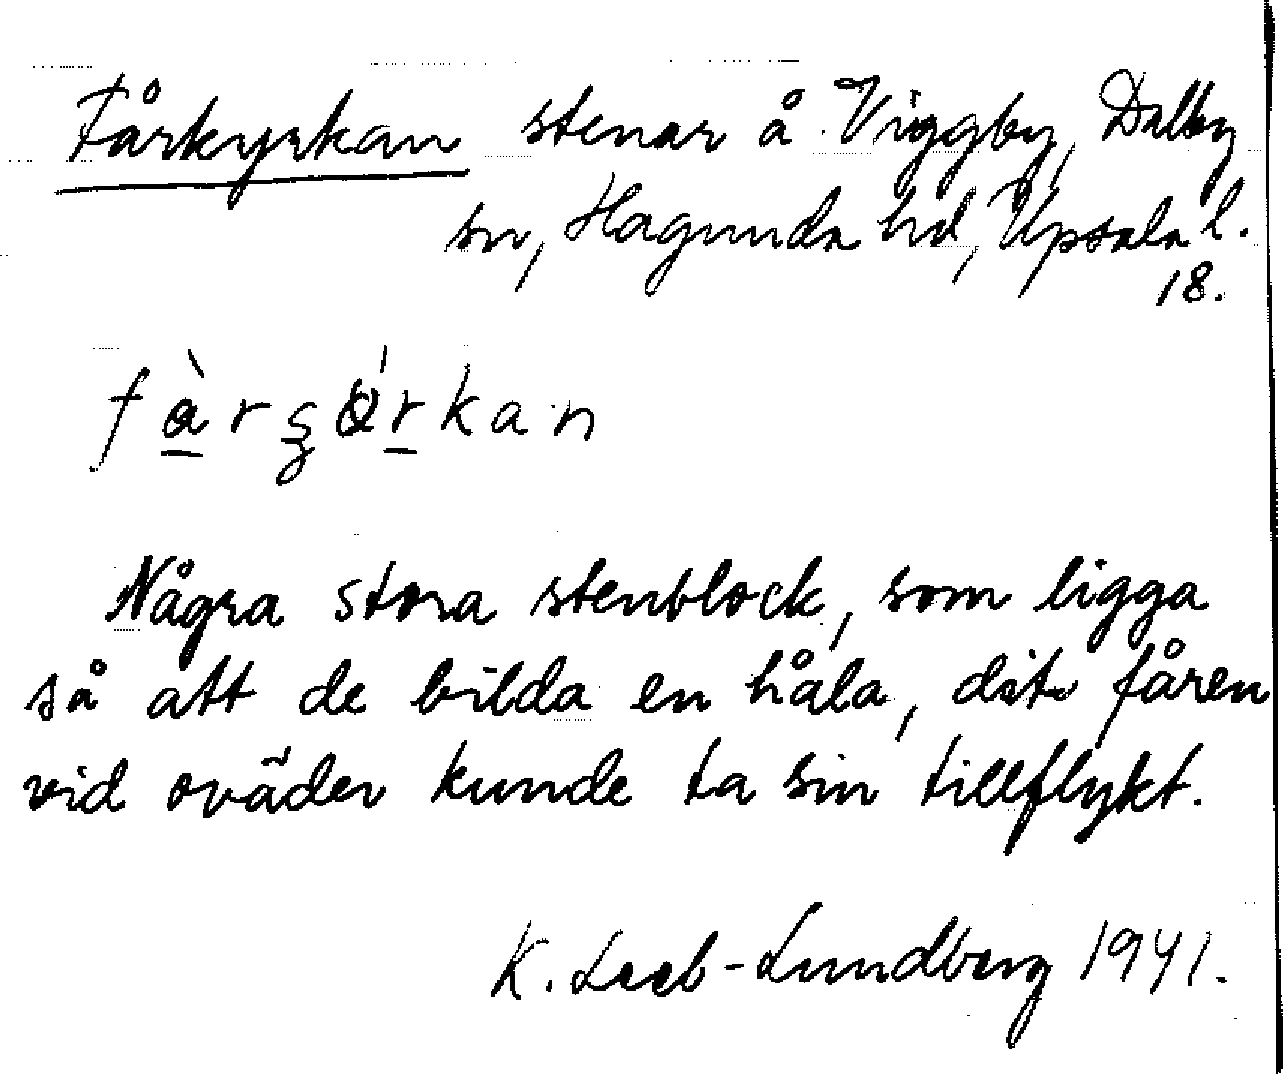 Fårkyrkan stenar å Viggby, Dalby
sn, Hagunda hd, Upsala l.
18.
Några stora stenblock, som ligga
så att de bilda en håla, dit fåren
vid oväder kunde ta sin tillflykt.
K. Leeb-Lundberg 1941.